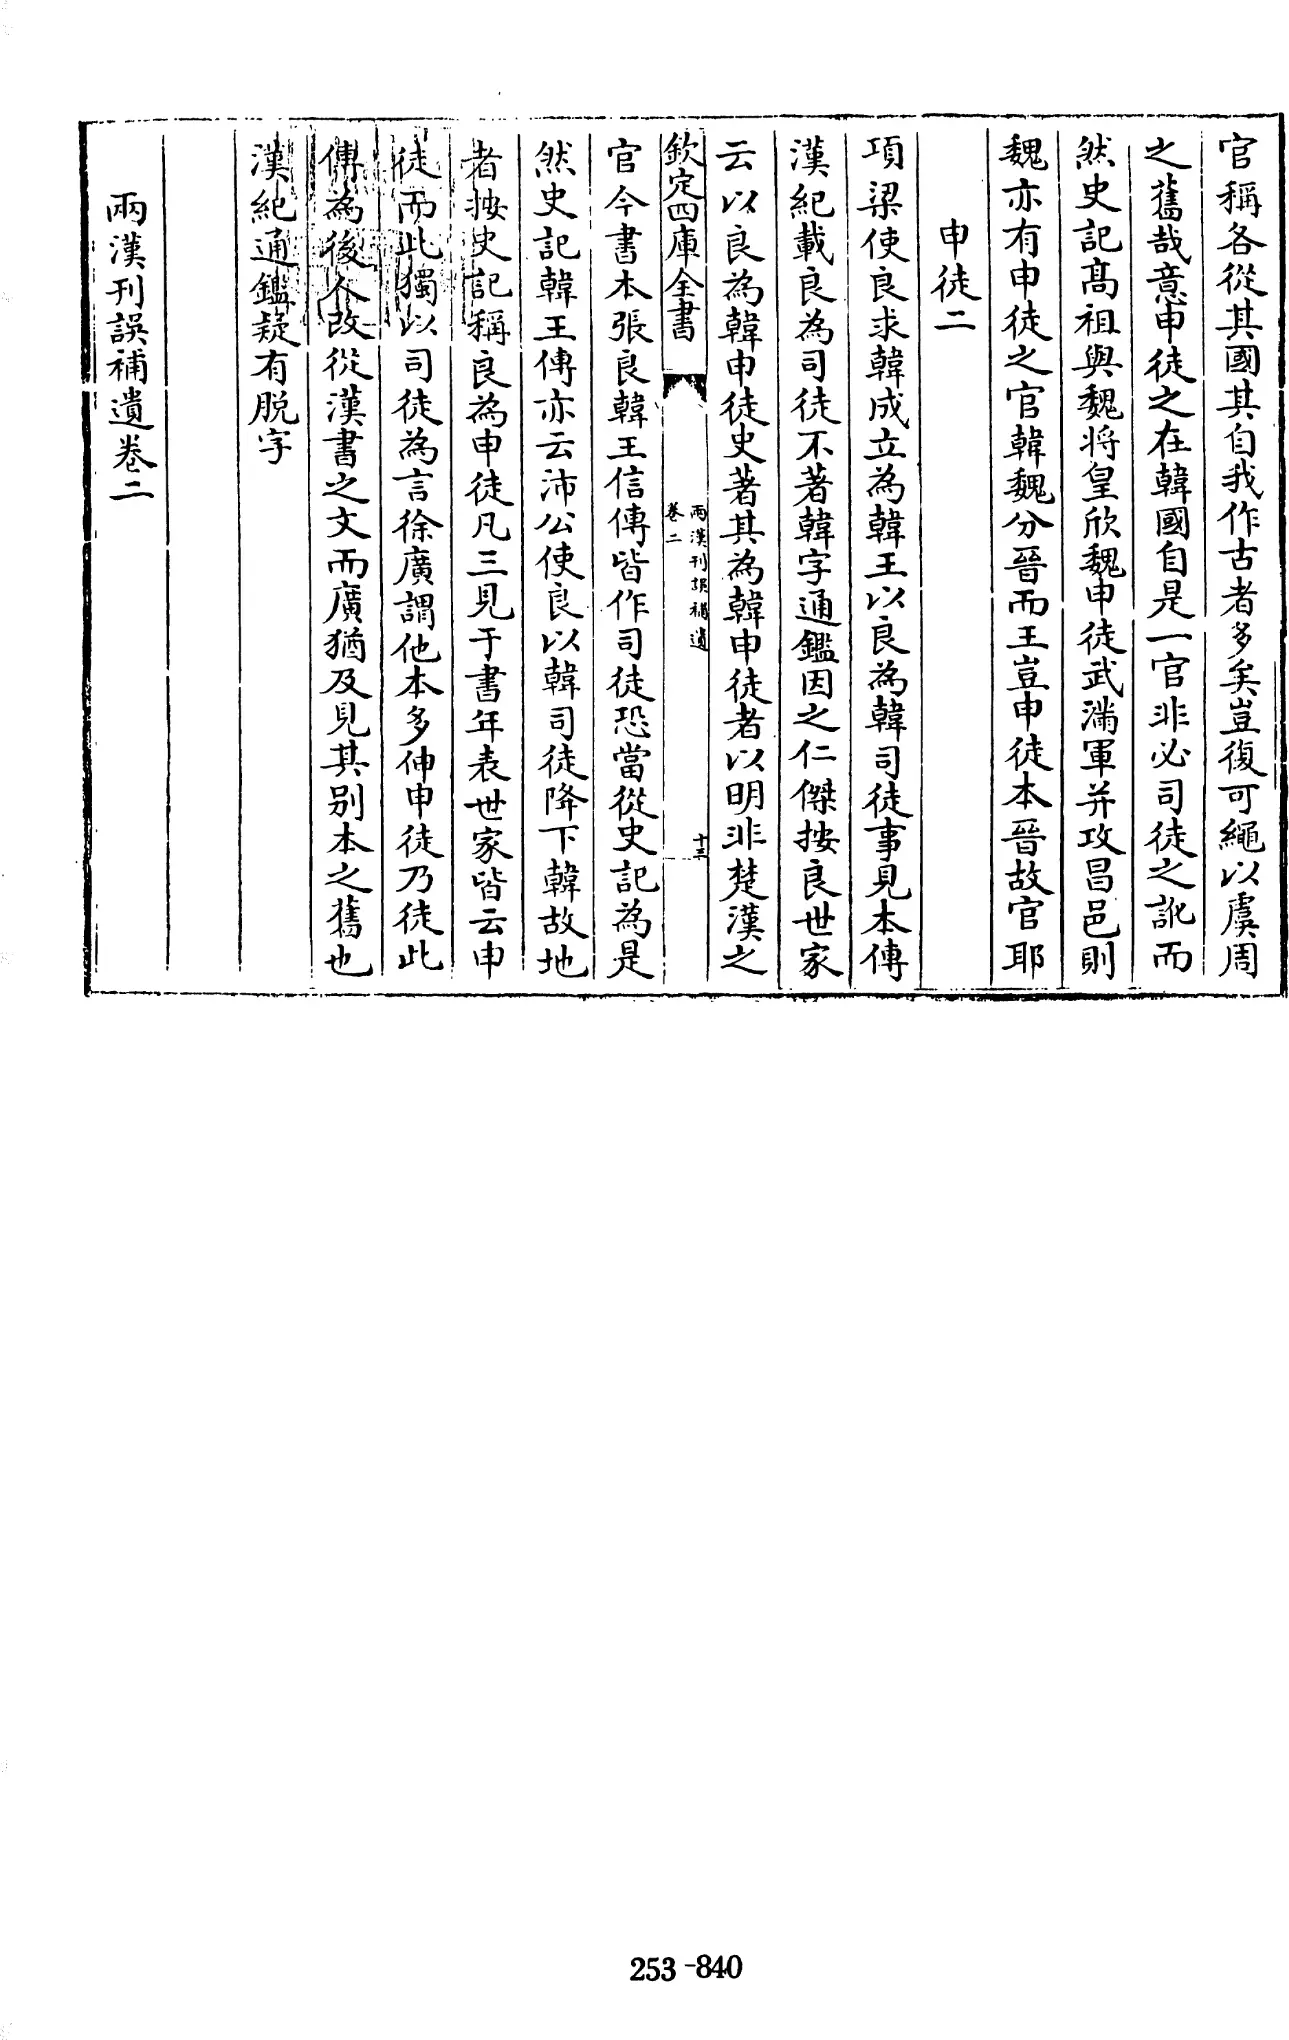 官稱各從其國其自我作古者多矣豈復可繩以虞周
之舊哉意申徒之在韓國自是一官非必司徒之訛而
然史記髙祖與魏將皇欣魏申徒武滿軍并攻昌邑則
魏亦有申徒之官韓魏分晉而王豈申徒本晉故官耶
申徒二
項梁使良求韓成立為韓王以良為韓司徒事見本傳
漢紀載良為司徒不著韓字通鑑因之仁傑按良世家
云以良為韓申徒史著其為韓申徒者以明非楚漢之
欽定四庫全書
兩漢刊誤補遺
卷二
十三
官今書本張良韓王信傳皆作司徒恐當從史記為是
然史記韓王傳亦云沛公使良以韓司徒降下韓故地
者按史記稱良為申徒凡三見于書年表世家皆云申
徒而此獨以司徒為言徐廣謂他本多伸申徒乃徒此
傳為後人改從漢書之文而廣猶及見其别本之舊也
漢紀通鑑疑有脱字
兩漢刊誤補遺卷二
253-840